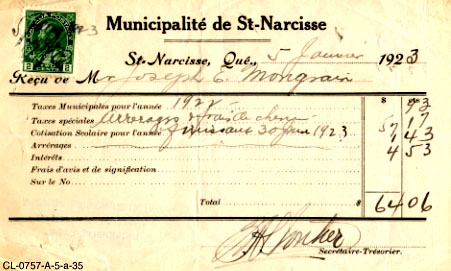 Municipalité de St-Narcisse
St-Narcisse, Qué., 5 Janvier 1923
Reçu de M Joseph E. Mongrain
$
Taxes Municipales pour l'année 192 73
Taxes spéciales Arrerages 57 17
Cotisation Scolaire pour l'année finissant 30 juin 1923 1 43
Arrérages 4 53
Intérêts
Frais d'avis et de signification
Sur le No
Total $ 64 06
Secrétaire-Trésorier.
CL-0757-A-5-a-35